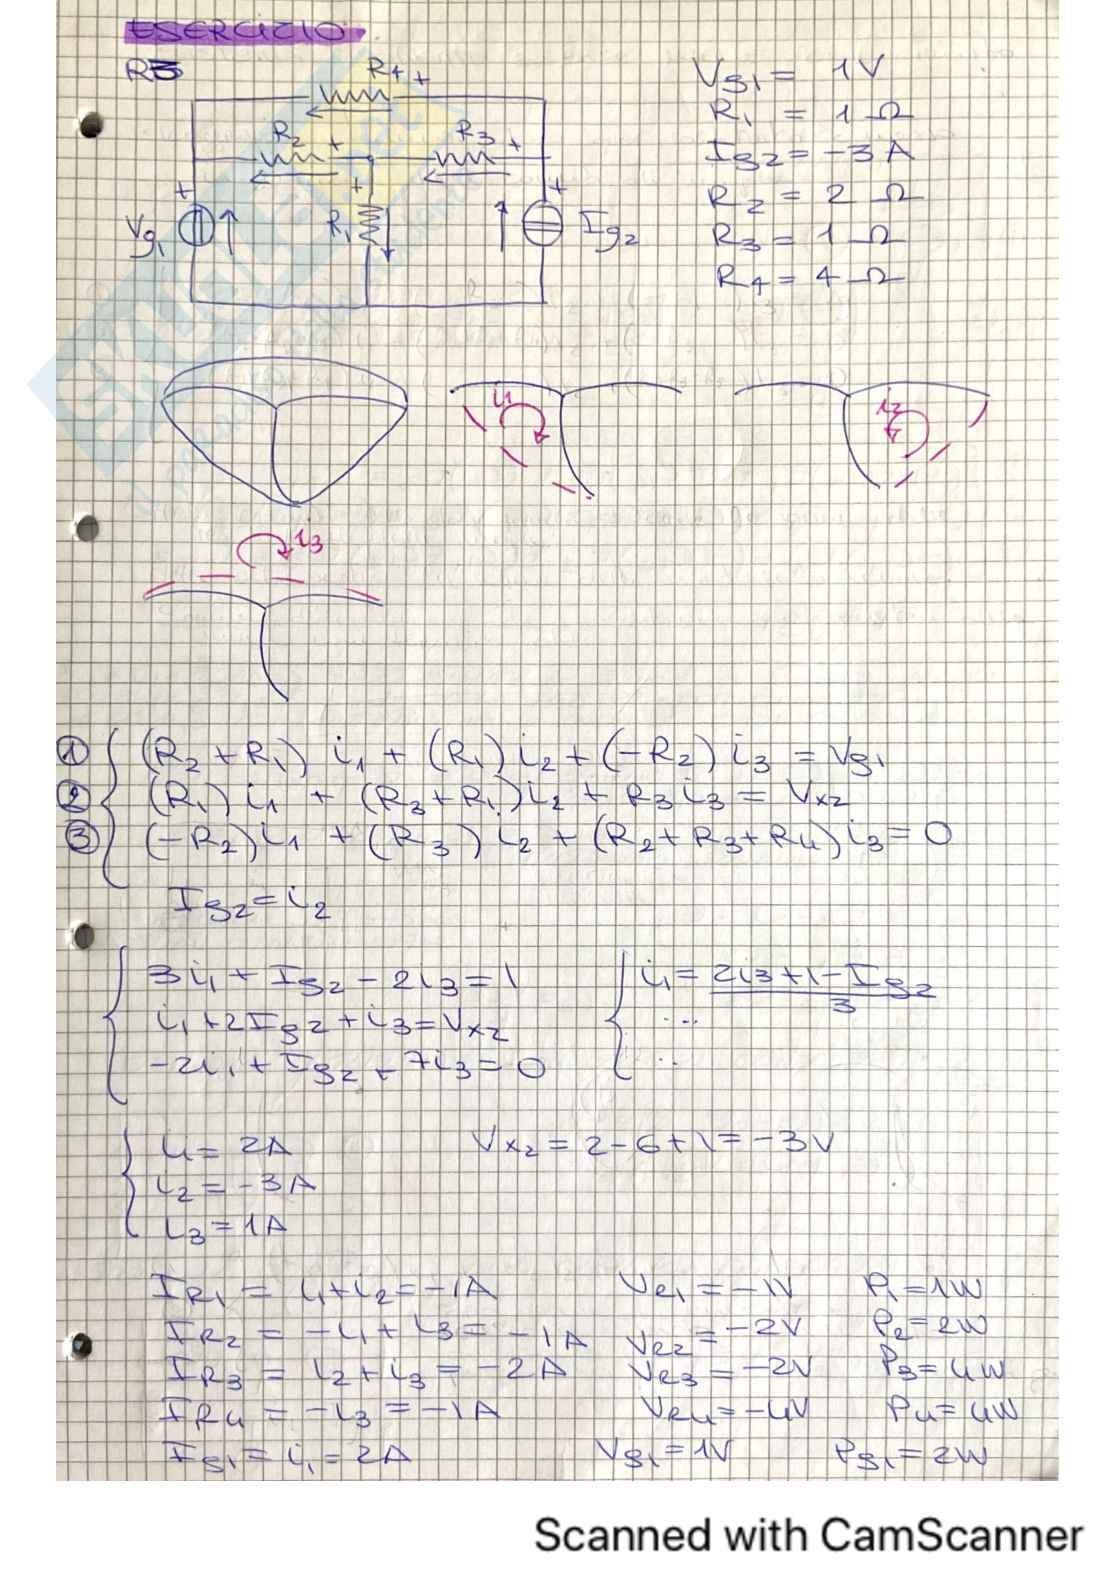 ESERCIZIO
R3
R4 +
Vg1 = 1V
R1 = 1 Ω
Ig2 = -3 A
R2 = 2 Ω
R3 = 1 Ω
R4 = 4 Ω
R2 +
R3 +
+ + +
Vg1
R1
Ig2
i1
i2
i3
① (R2+R1) i1 + (R1) i2 + (-R2) i3 = Vg1
② (R1) i1 + (R3+R1) i2 + R3 i3 = Vx2
③ (-R2) i1 + (R3) i2 + (R2+R3+R4) i3 = 0
Ig2 = i2
3i1 + Ig2 - 2i3 = 1
i1 + 2Ig2 + i3 = Vx2
-2i1 + Ig2 + 7i3 = 0
i1 = 2i3+1-Ig2
3
...
..
i1 = 2A
i2 = -3A
i3 = 1A
Vx2 = 2-6+1 = -3V
IR1 = i1+i2 = -1A VR1 = -1V P1 = 1W
IR2 = -i1+i3 = -1A VR2 = -2V P2 = 2W
IR3 = i2+i3 = -2A VR3 = -2V P3 = 4W
IR4 = -i3 = -1A VR4 = -4V P4 = 4W
Ig1 = i1 = 2A Vg1 = 1V Pg1 = 2W
Scanned with CamScanner